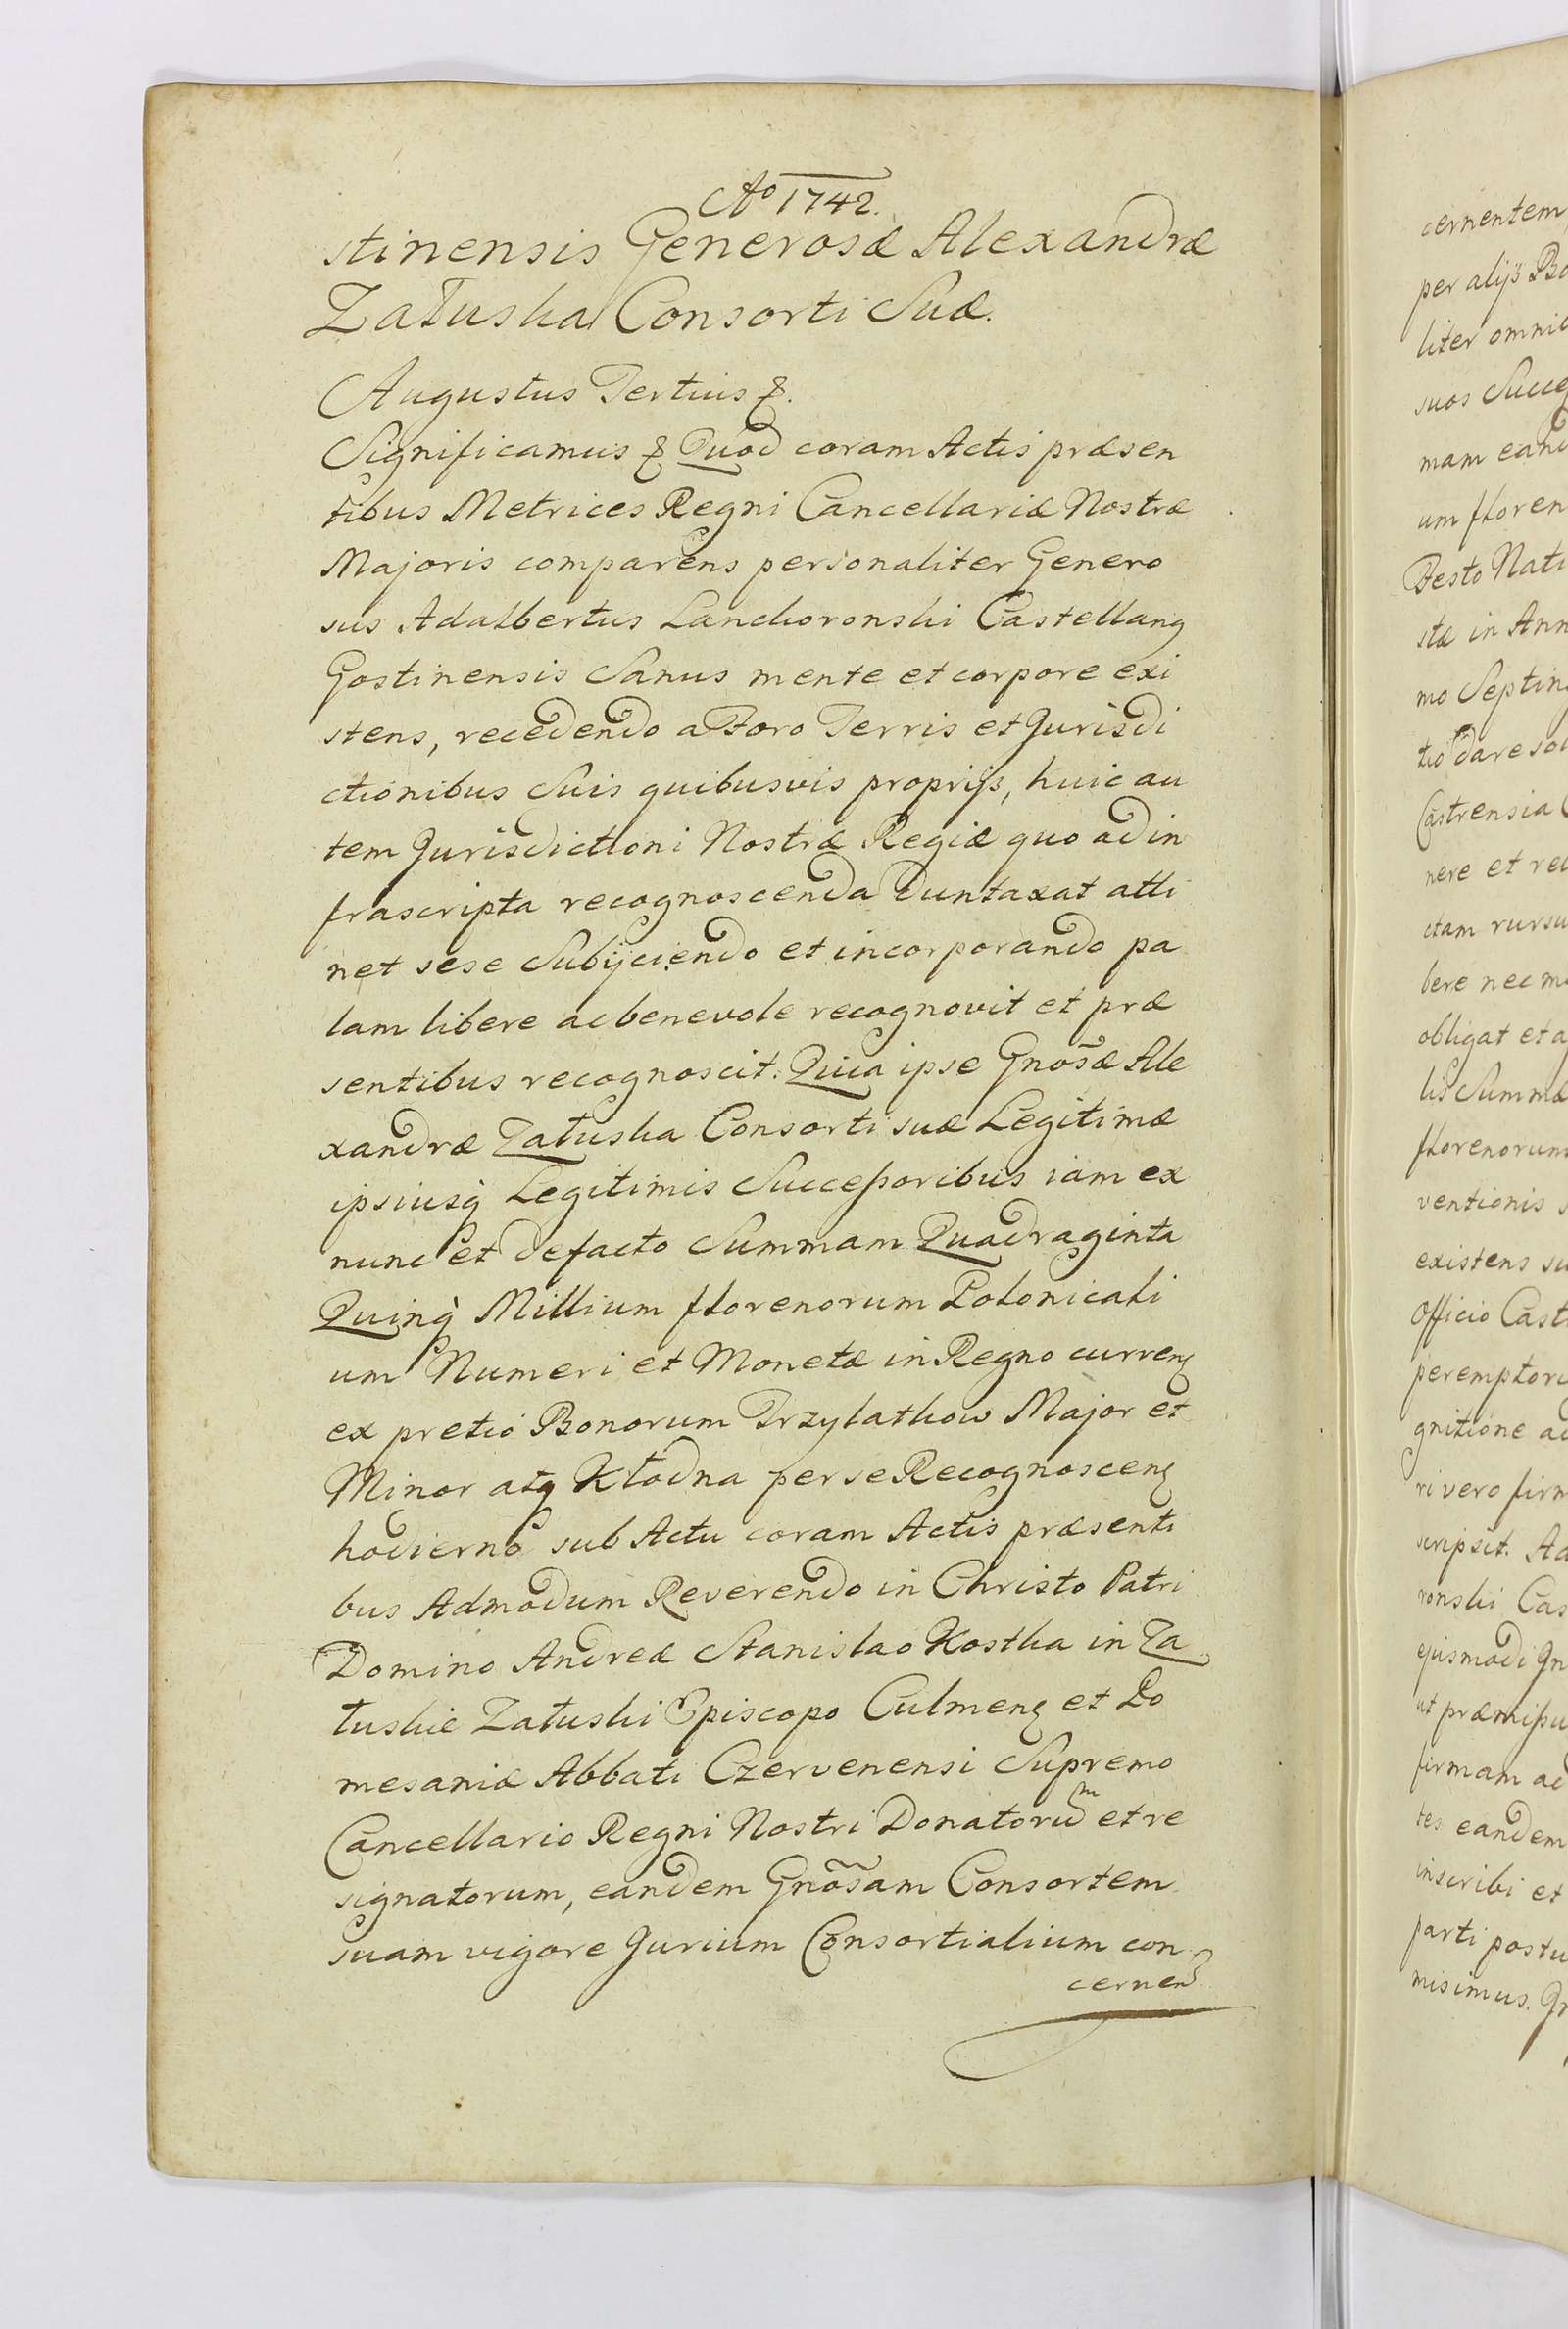 Aº 1742.
stinensis Generosæ Alexandræ
Załuska Consorti Suæ.
Augustus Tertius &.
Significamus & Quod coram Actis præsen
tibus Metrices Regni Cancellariæ Nostræ
Majoris comparens personaliter Genero
sus Adalbertus Lanckoronski Castellanꝯ
Gostinensis Sanus mente et corpore exi
stens, recedendo a Foro Terris et Jurisdi
ctionibus Suis quibusvis proprijs, huic au
tem Jurisdictioni Nostræ Regiæ quo ad in
frascripta recognoscenda duntaxat atti
net sese Subijciendo et incorporando pa
lam libere ac benevole recognovit et præ
sentibus recognoscit. Quia ipse Gnosæ Ale
xandræ Załuska Consorti suæ Legitimæ
ipsiusq̀ Legitimis Successoribus iam ex
nunc et defacto Summam Quadraginta
Quinq̀ Millium florenorum Polonicali
um Numeri et Monetæ in Regno currenꝭ
ex pretio Bonorum Przyłatkow Major et
Minor atq̀ Kłodna per se Recognoscenꝭ
hodierno sub Actu coram Actis præsenti
bus Admodum Reverendo in Christo Patri
Domino Andreæ Stanislao Kostka in Za
łuskie Załuski Episcopo Culmenꝭ et Po
mesaniæ Abbati Czervenensi Supremo
Cancellario Regni Nostri Donatorum et re
signatorum, eandem Gnosam Consortem
suam vigore Jurium Consortialium con
cernen
cernentem
per alijs Bo
liter omni
suos Succe
mam ean
um floren
Festo Nati
stæ in Ann
mo Septin
tio dare sol
Castrensia
nere et rec
ctam rursu
bere nec m
obligat et a
lis Summæ
florenorum
ventionis
existens su
Officio Cast
peremptori
gnitione ac
ri vero firm
scripsit. Ad
ronski Cas
ejusmodi Gn
ut præmissu
firmam ac
tes eandem
inscribi et
parti postu
misimus.